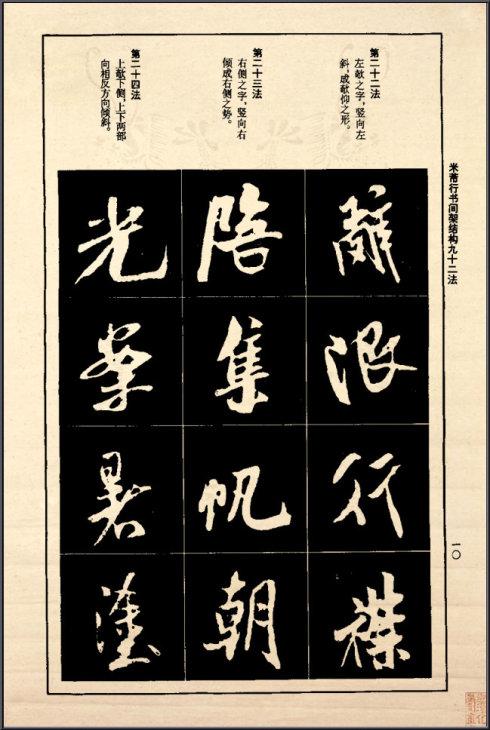 米芾行书间架结构九十二法
一〇
第二十二法
左欹之字，竖向左
斜，成欹仰之形。
辭
行
第二十三法
右侧之字，竖向右
倾成右侧之势。
集帆朝
第二十四法
上欹下侧，上下两部
向相反方向倾斜。
光
暑塗